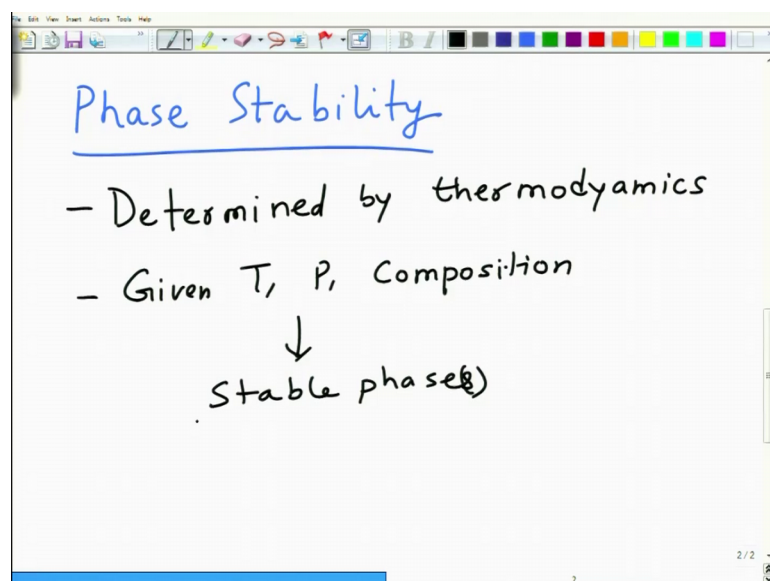 File Edit View Insert Actions Tools Help
B I
Phase Stability
- Determined by thermodyamics
- Given T, P, Composition
↓
Stable phase(s)
2/2